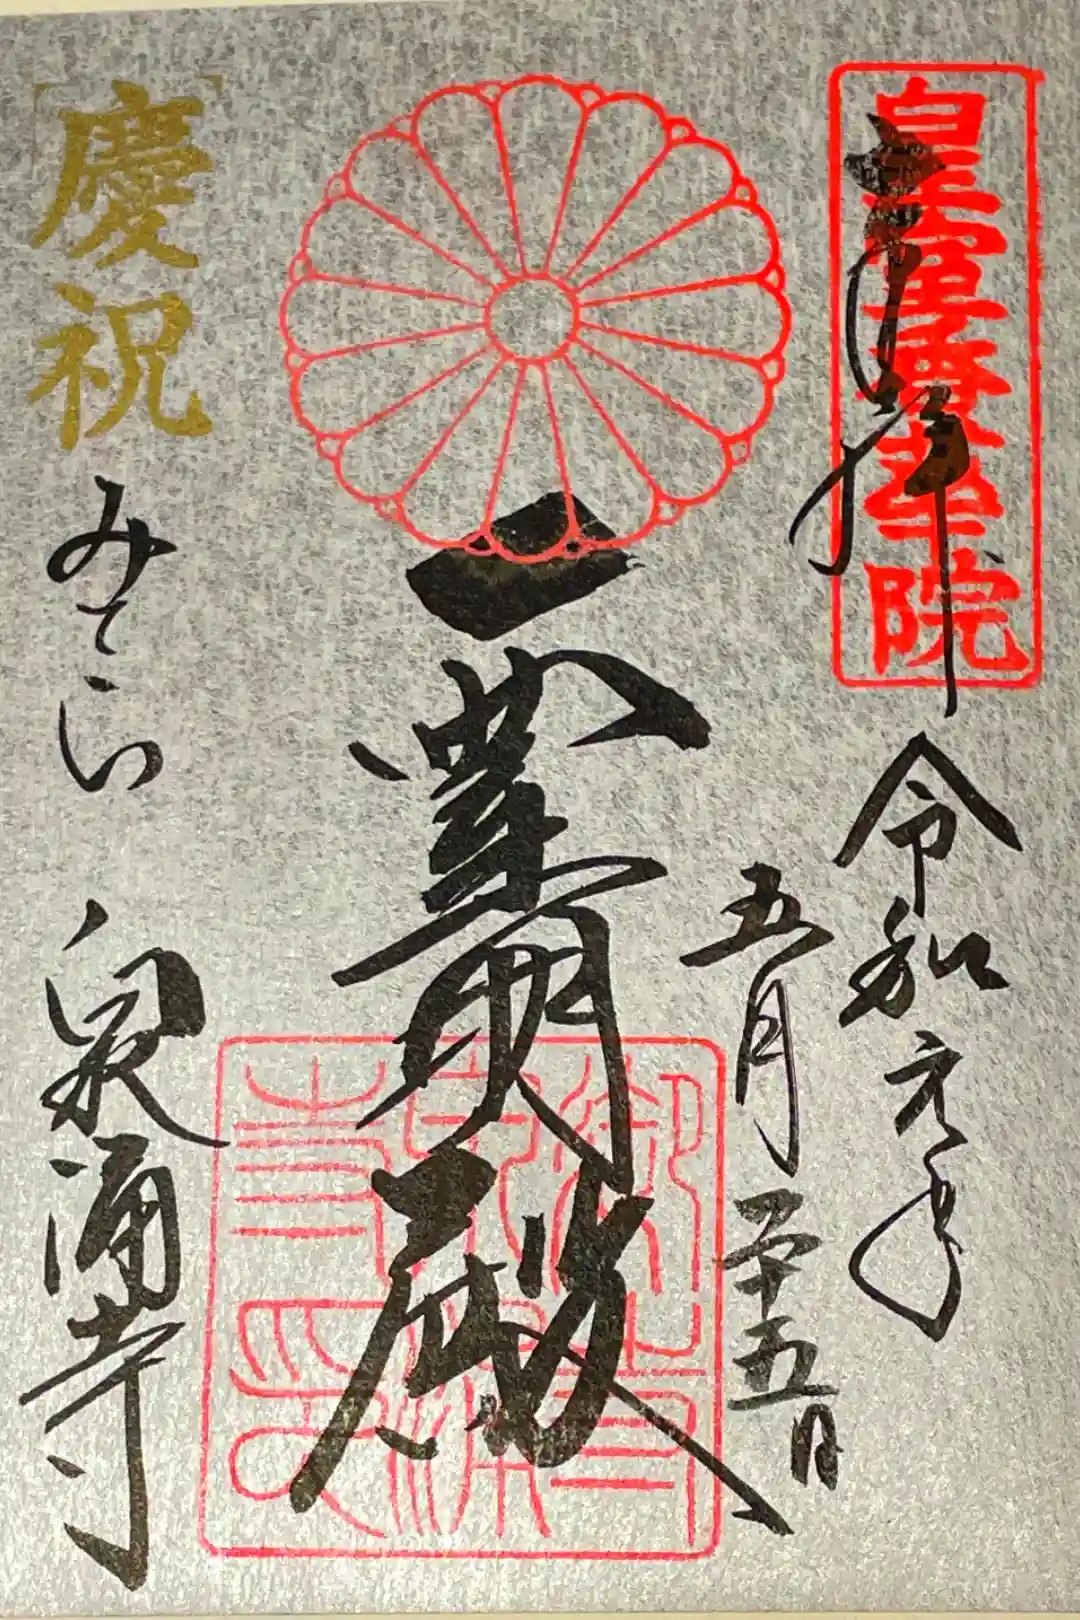 奉拝
皇室香華院
令和元年
五月二十五日
霊明殿
慶祝
みてら
泉涌寺